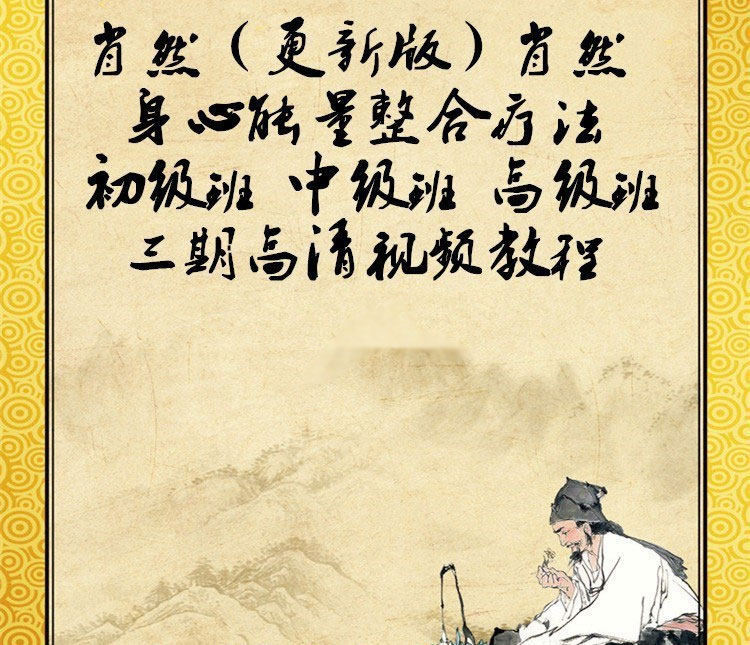 肖然（更新版）肖然
身心能量整合疗法
初级班 中级班 高级班
三期高清视频教程